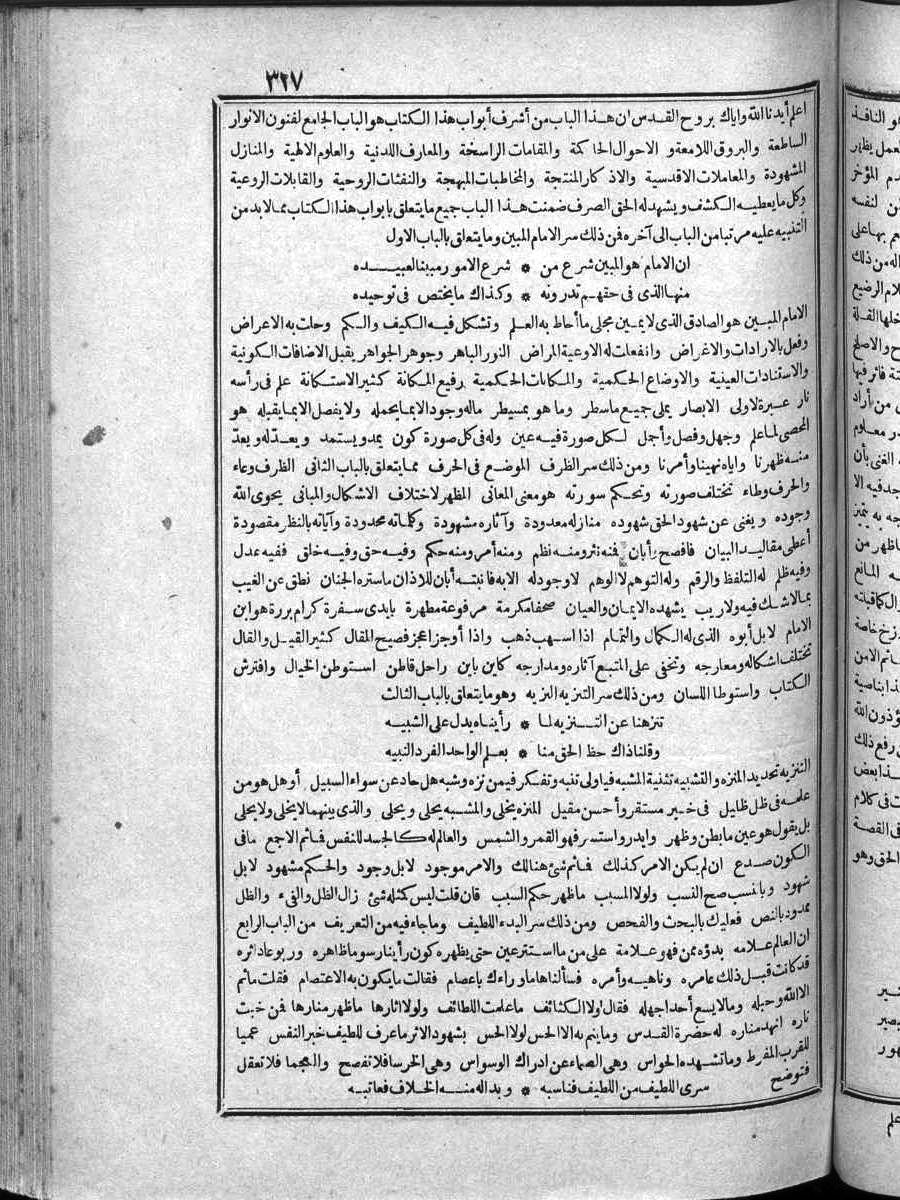 ٣٢٧
اعلم أيدنا الله واياك بروح القدس ان هذا الباب من أشرف أبواب هذا الكتاب هو الباب الجامع لفنون الانوار
الساطعة والبروق اللامعة و الاحوال الحاكمة والمقامات الراسخة والمعارف اللدنية والعلوم الالهية والمنازل
المشهودة والمعاملات الاقدسية والاذكار المنتجة والمخاطبات المبهجة والنفثات الروحية والقابلات الروعية
وكل ما يعطيه الكشف ويشهد له الحق الصرف ضمنت هذا الباب جميع ما يتعلق بابواب هذا الكتاب مما لابد من
التنبيه عليه مرتبا من الباب الى آخره فمن ذلك سر الامام المبين وما يتعلق بالباب الاول
ان الامام هو المبين شرع من * شرع الامور مبينا لعبيده
منها الذى فى حقهم تدرونه * وكذاك ما يختص فى توحيده
الامام المبين هو الصادق الذى لا يمين مجلى ما أحاط به العلم وتشكل فيه الكيف والكم وحلت به الاعراض
وفعل بالارادات والاغراض وانفعلت له الاوعية المراض النور الباهر وجوهر الجواهر يقبل الاضافات الكونية
والاستنادات العينية والاوضاع الحكمية والمكانات الحكمية رفيع المكانة كثير الاستكانة علم فى رأسه
نار عبرة لاولى الابصار يملى جميع ما سطر وما هو بمسيطر ماله وجود الا بما يحمله ولا يفصل الا بما يقبله هو
المحصى لما علم وجهل وفصل وأجل لكل صورة فيه عين وله فى كل صورة كون يمد ويستمد ويعد له ويعد
منه ظهرنا واياه نهينا وأمرنا ومن ذلك سر الظرف الموضع فى الحرف مما يتعلق بالباب الثانى الظرف وعاء
والحرف وطاء تختلف صورته وتحكم سورته هو معنى المعانى المظهر لاختلاف الاشكال والمبانى يحوى الله
وجوده ويغنى عن شهود الحق شهوده منازله معدودة وآثاره مشهودة وكلماته محدودة وآياته بالنظر مقصودة
أعطى مقاليد البيان فافصح وأبان فنه نثر ومنه نظم ومنه أمر ومنه حكم وفيه حق وفيه خلق ففيه عدل
وفيه ظلم له التلفظ والرقم وله التوهم لا الوهم لا وجود له الا به فانبته أبان للاذان ما ستره الجنان نطق عن الغيب
بما لا شك فيه ولا ريب يشهده الايمان والعيان صحفا مكرمة مرفوعة مطهرة بايدى سفرة كرام بررة هو ابن
الامام لا بل أبوه الذى له الكمال والتمام اذا اسهب ذهب واذا أوجز اعجز فصيح المقال كثير القيل والقال
تختلف اشكاله ومعارجه وتخفى على المتبع آثاره ومدارجه كاين باين راحل قاطن استوطن الخيال وافترش
الكتاب واستوطا اللسان ومن ذلك سر التنزيه النزيه وهو ما يتعلق بالباب الثالث
تنزهنا عن التنزيه لما * رأيناه يدل على الشبيه
وقلنا ذاك حظ الحق منا * بعلم الواحد الفرد النبيه
التنزيه تحديد المنزه والتشبيه تثنية المشبه فيا ولى تنبه وتفكر فيمن نزه وشبه هل حاد عن سواء السبيل أو هل هو من
علمه فى ظل ظليل فى خير مستقر وأحسن مقيل المنزه يخلى والمشبه يحلى ويجلى والذى بينهما لا يخلى ولا يحلى
بل يقول هو عين ما بطن وظهر وابدر واستسر فهو القمر والشمس والعالم له كالجسد للنفس فما ثم الا جمع مافى
الكون صدع ان لم يكن الامر كذلك فما ثم شئ هنالك والامر موجود لا بل وجود والحكم مشهود لا بل
شهود وبالنسب صح النسب ولولا المسبب ما ظهر حكم السبب فان قلت ليس كمثله شئ زال الظل والفىء والظل
ممدود بالنص فعليك بالبحث والفحص ومن ذلك سر البدء اللطيف وما جاء فيه من التعريف من الباب الرابع
ان العالم علامه بدؤه ممن فهو علامة على من ما استتر عين حتى يظهره كون رأينا رسوما ظاهره وربوعا داثره
قد كانت قبل ذلك عامره وناهيه وأمره فسألناها ما وراءك يا عصام فقالت ما يكون به الاعتصام فقلت ما ثم
الا الله وحبله وما لا يسع أحدا جهله فقال لولا الكثائف ما علمت اللطائف ولولا آثارها ما ظهر منارها فمن خبت
ناره انهد مناره له حضرة القدس وما ينم به الا الحس لولا الحس بشهود الاثر ما عرف للطيف خبر النفس عميا
للقرب المفرط وما تشهده الحواس وهى الصماء عن ادراك الوسواس وهى الخرسا فلا تفصح والعجما فلا تعقل
فتوضح سرى اللطيف من اللطيف فناسبه * وبدا له منه الخلاف فعاتبه